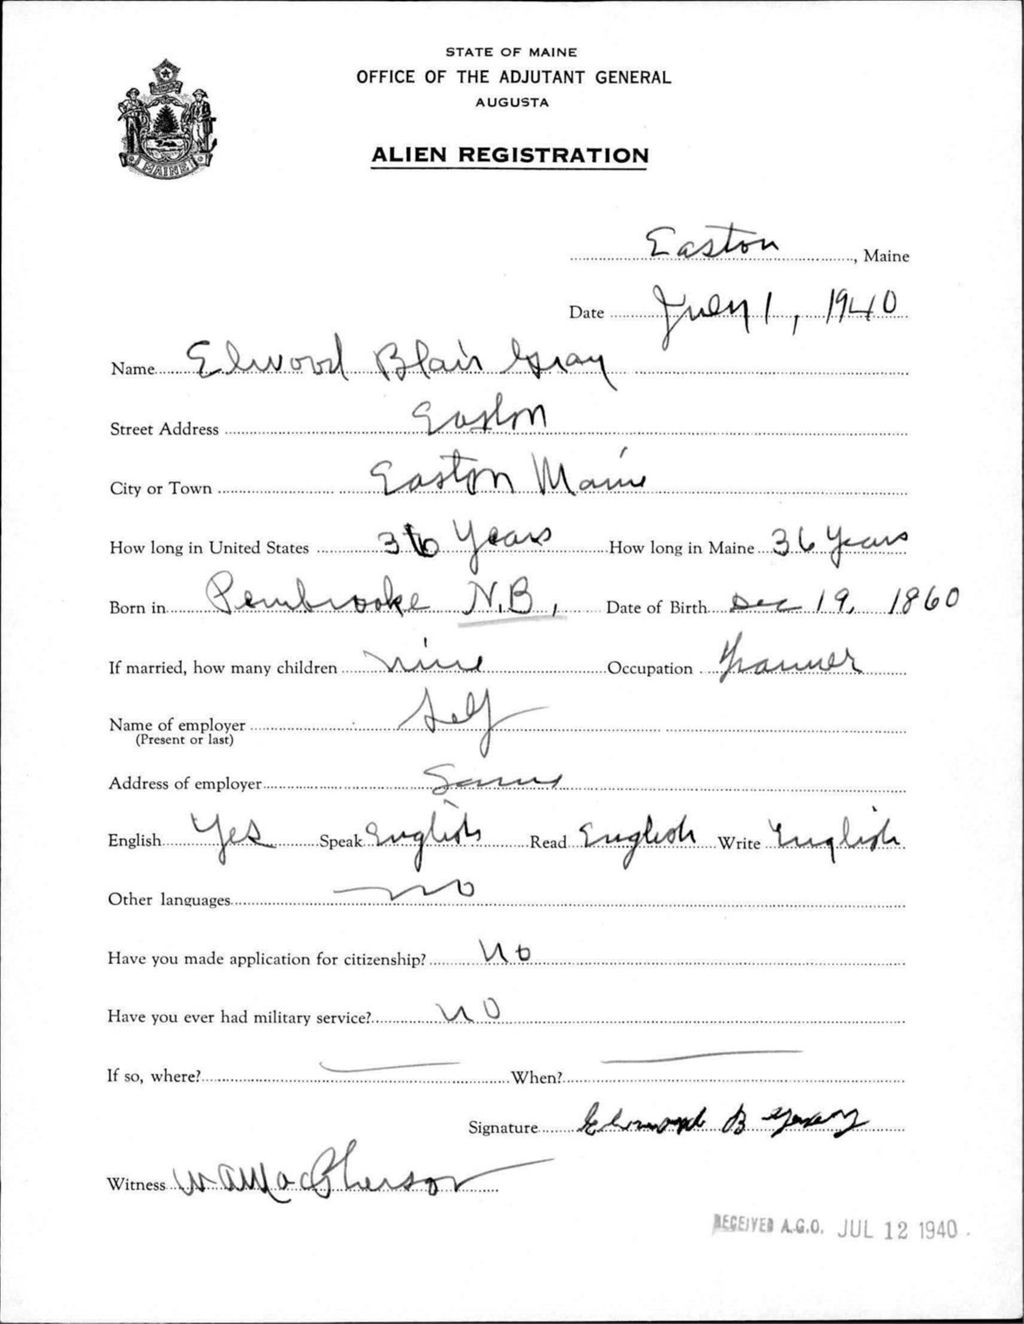 STATE OF MAINE
OFFICE OF THE ADJUTANT GENERAL
AUGUSTA
MAINE
ALIEN REGISTRATION
Easton, Maine
Date July 1, 1940
Name Elwood Blair Gray
Street Address Easton
City or Town Easton Maine
How long in United States 36 Years How long in Maine 36 Years
Born in Pembrooke N.B, Date of Birth Dec 19, 1860
If married, how many children nine Occupation Farmer
Name of employer Self
(Present or last)
Address of employer Same
English Yes Speak English Read English Write English
Other languages no
Have you made application for citizenship? No
Have you ever had military service? NO
If so, where? When?
Signature Elwood B Gray
Witness W A MacPherson
RECEIVED A.G.O. JUL 12 1940